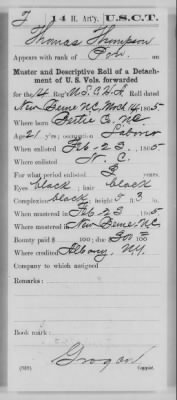 T 14 H. Art'y. U.S.C.T.
Thomas Thompson
Appears with rank of Pvt. on
Muster and Descriptive Roll of a Detach-
ment of U. S. Vols. forwarded
for the 14 Reg't U.S.C.H.A. Roll dated
New Berne N.C. Mch 14, 1865
Where born Pettie Co. N.C.
Age 21 y'rs; occupation Laborer
When enlisted Feb. 23, 1865
Where enlisted N. C.
For what period enlisted 3 years.
Eyes black; hair black
Complexion black; height 5 ft. 3 in.
When mustered in Feb. 23, 1865
Where mustered in New Berne, N.C.
Bounty paid $ 100; due $ 300 100
Where credited Albany, N.Y.
Company to which assigned
Remarks:
Book mark:
Grogan
Copyist.